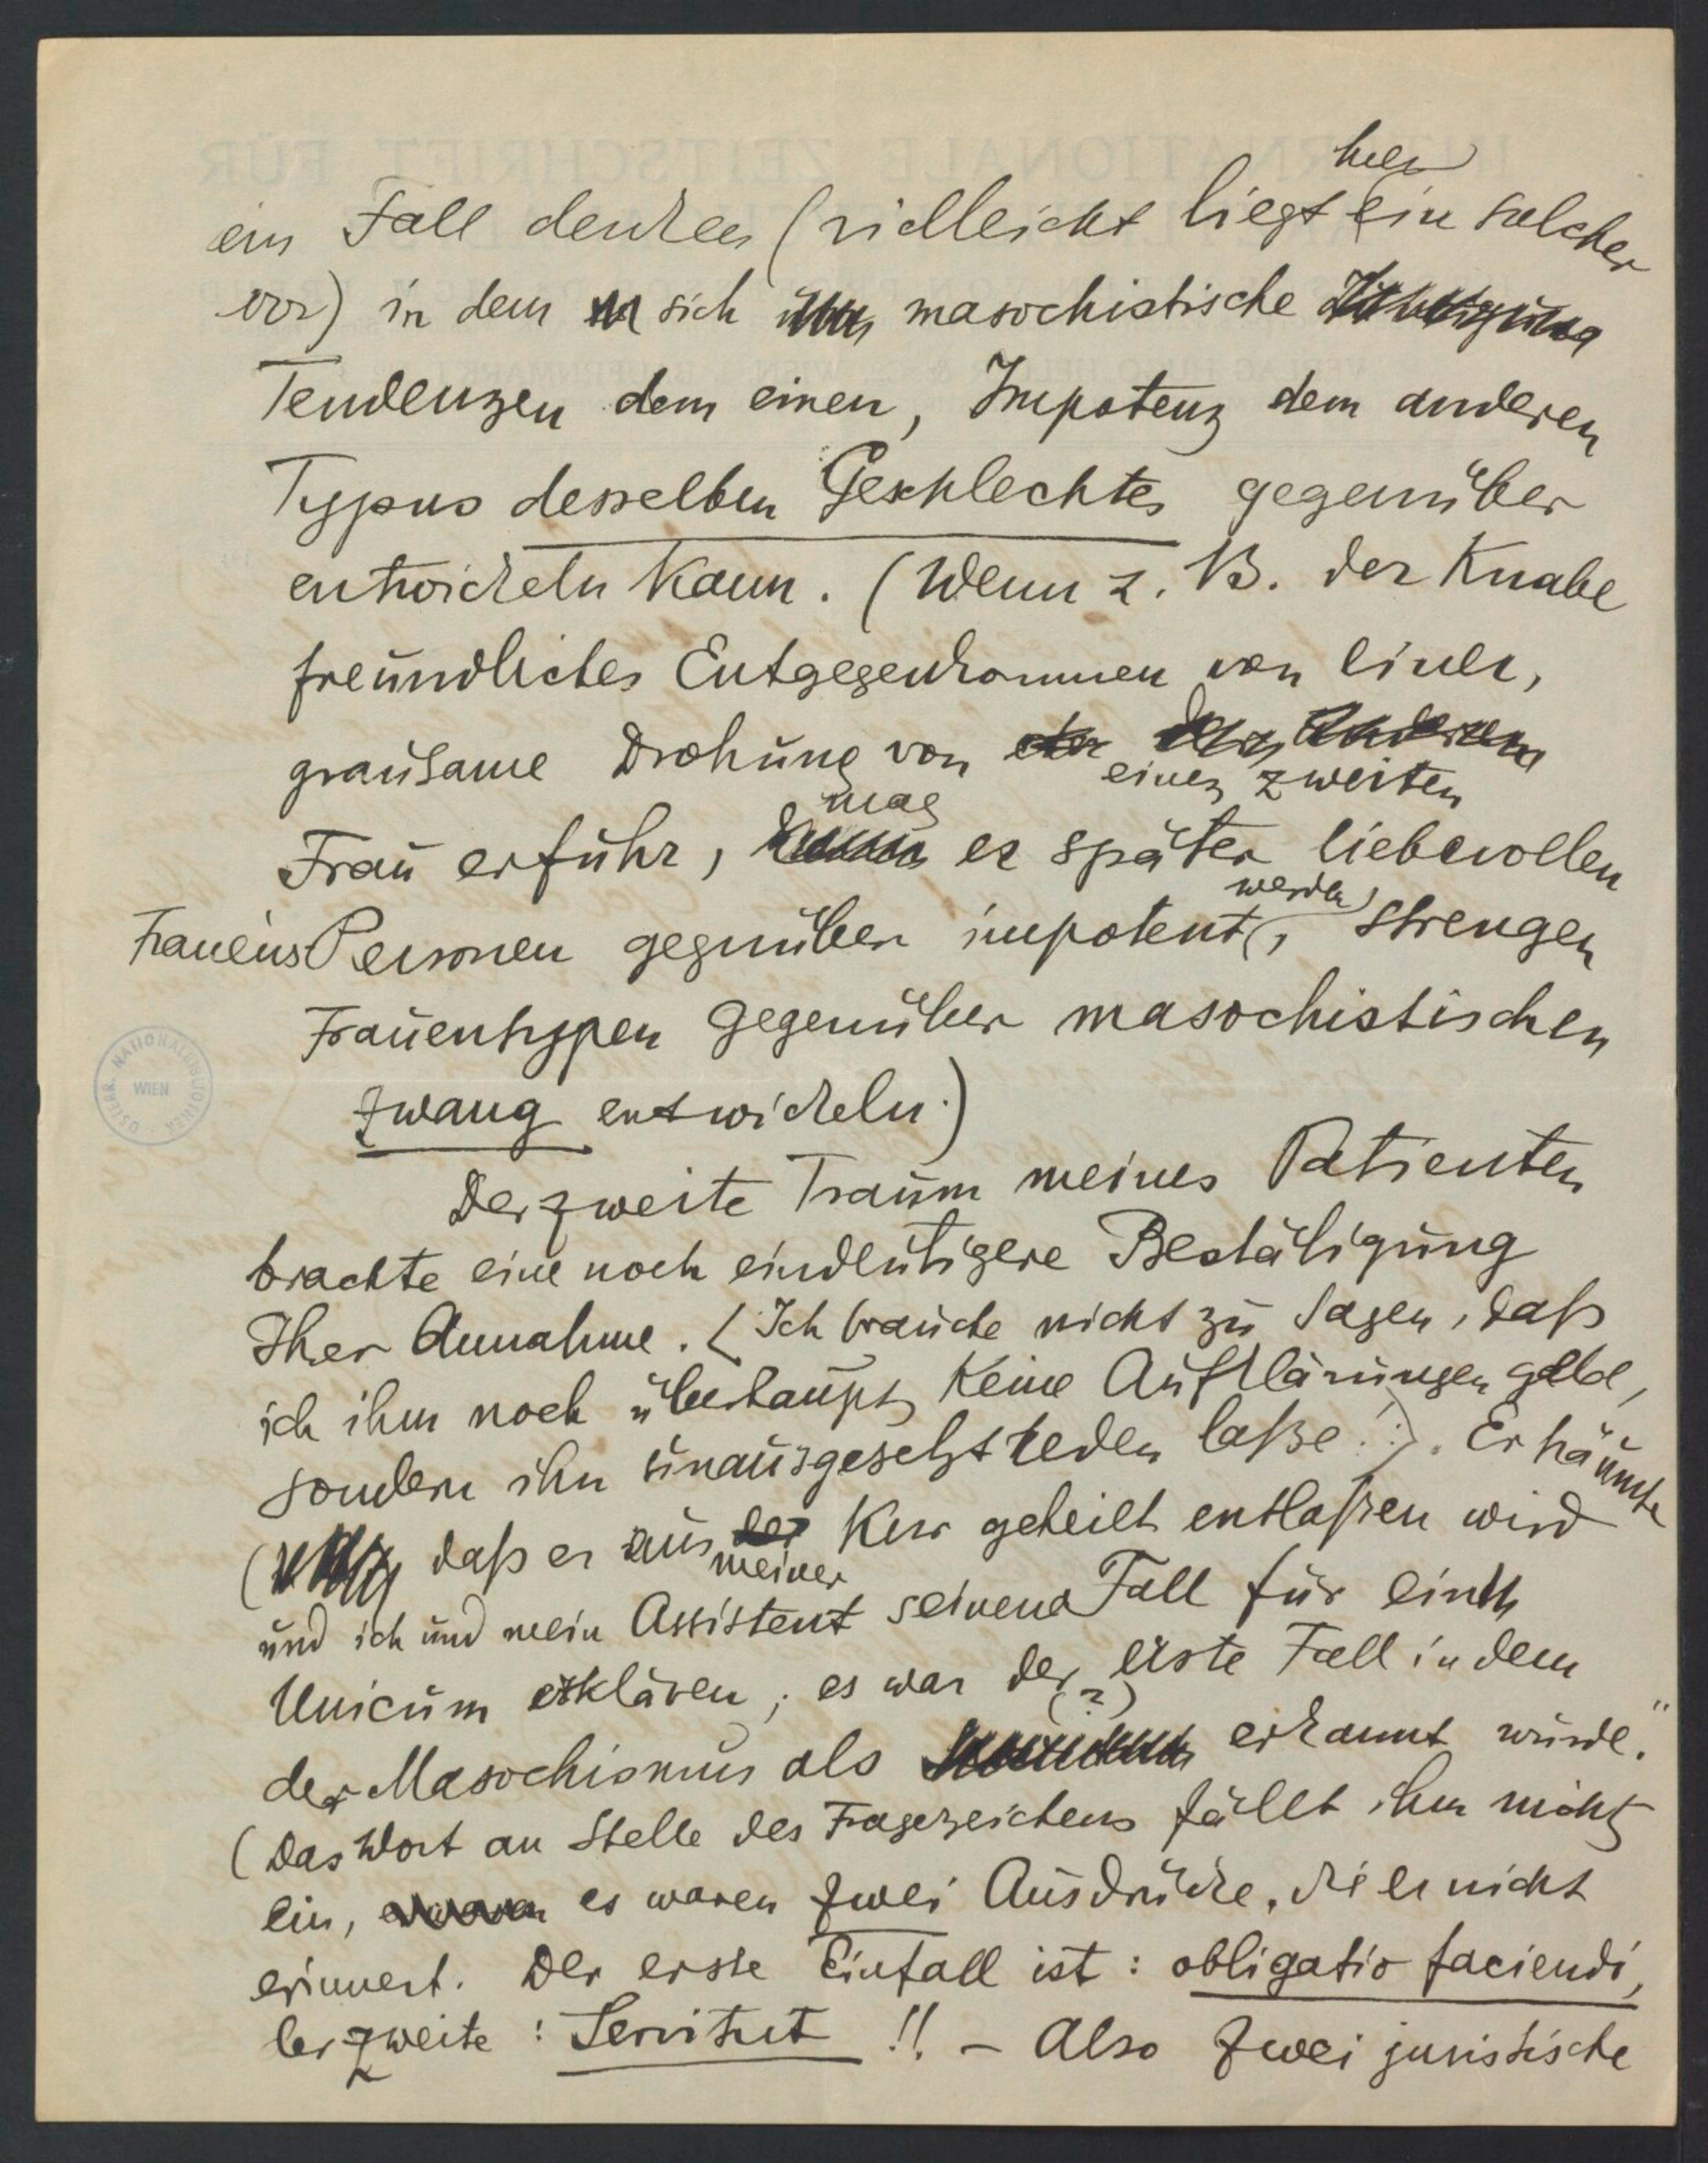 hier
ein Fall denken (vielleicht liegt ein solcher
vor) in dem sich masochistische
Tendenzen dem einen, Impotenz dem anderen
Typus desselben Geschlechtes gegenüber
entwickeln kann. (Wenn z. B. der Knabe
freundliches Entgegenkommen von einer,
grausame Drohung von der der anderen
einer zweiten
mag
Frau erfuhr, er später liebevollen
werden
Frauens Personen gegenüber impotent, strengen
Frauentypen gegenüber masochistischen
Zwang entwickeln.)
Der zweite Traum meines Patienten
brachte eine noch eindeutigere Bestätigung
Ihrer Annahme. (Ich brauche nicht zu sagen, daß
ich ihm noch überhaupt keine Aufklärungen gebe,
sondern ihn unausgesetzt reden laße!). Er träumte
(daß er aus der Kur geheilt entlaßen wird
meiner
und ich und mein Assistent seinen Fall für ein
Unicum erklären; es war der erste Fall in dem
(?)
der Masochismus als erkannt wurde."
(Das Wort an Stelle des Fragezeichens fällt ihm nicht
ein, es waren zwei Ausdrücke, die er nicht
erinnert. Der erste Einfall ist: obligatio faciendi,
der zweite: Servitut!! – Also zwei juristische
ÖSTERR. NATIONALBIBLIOTHEK
WIEN